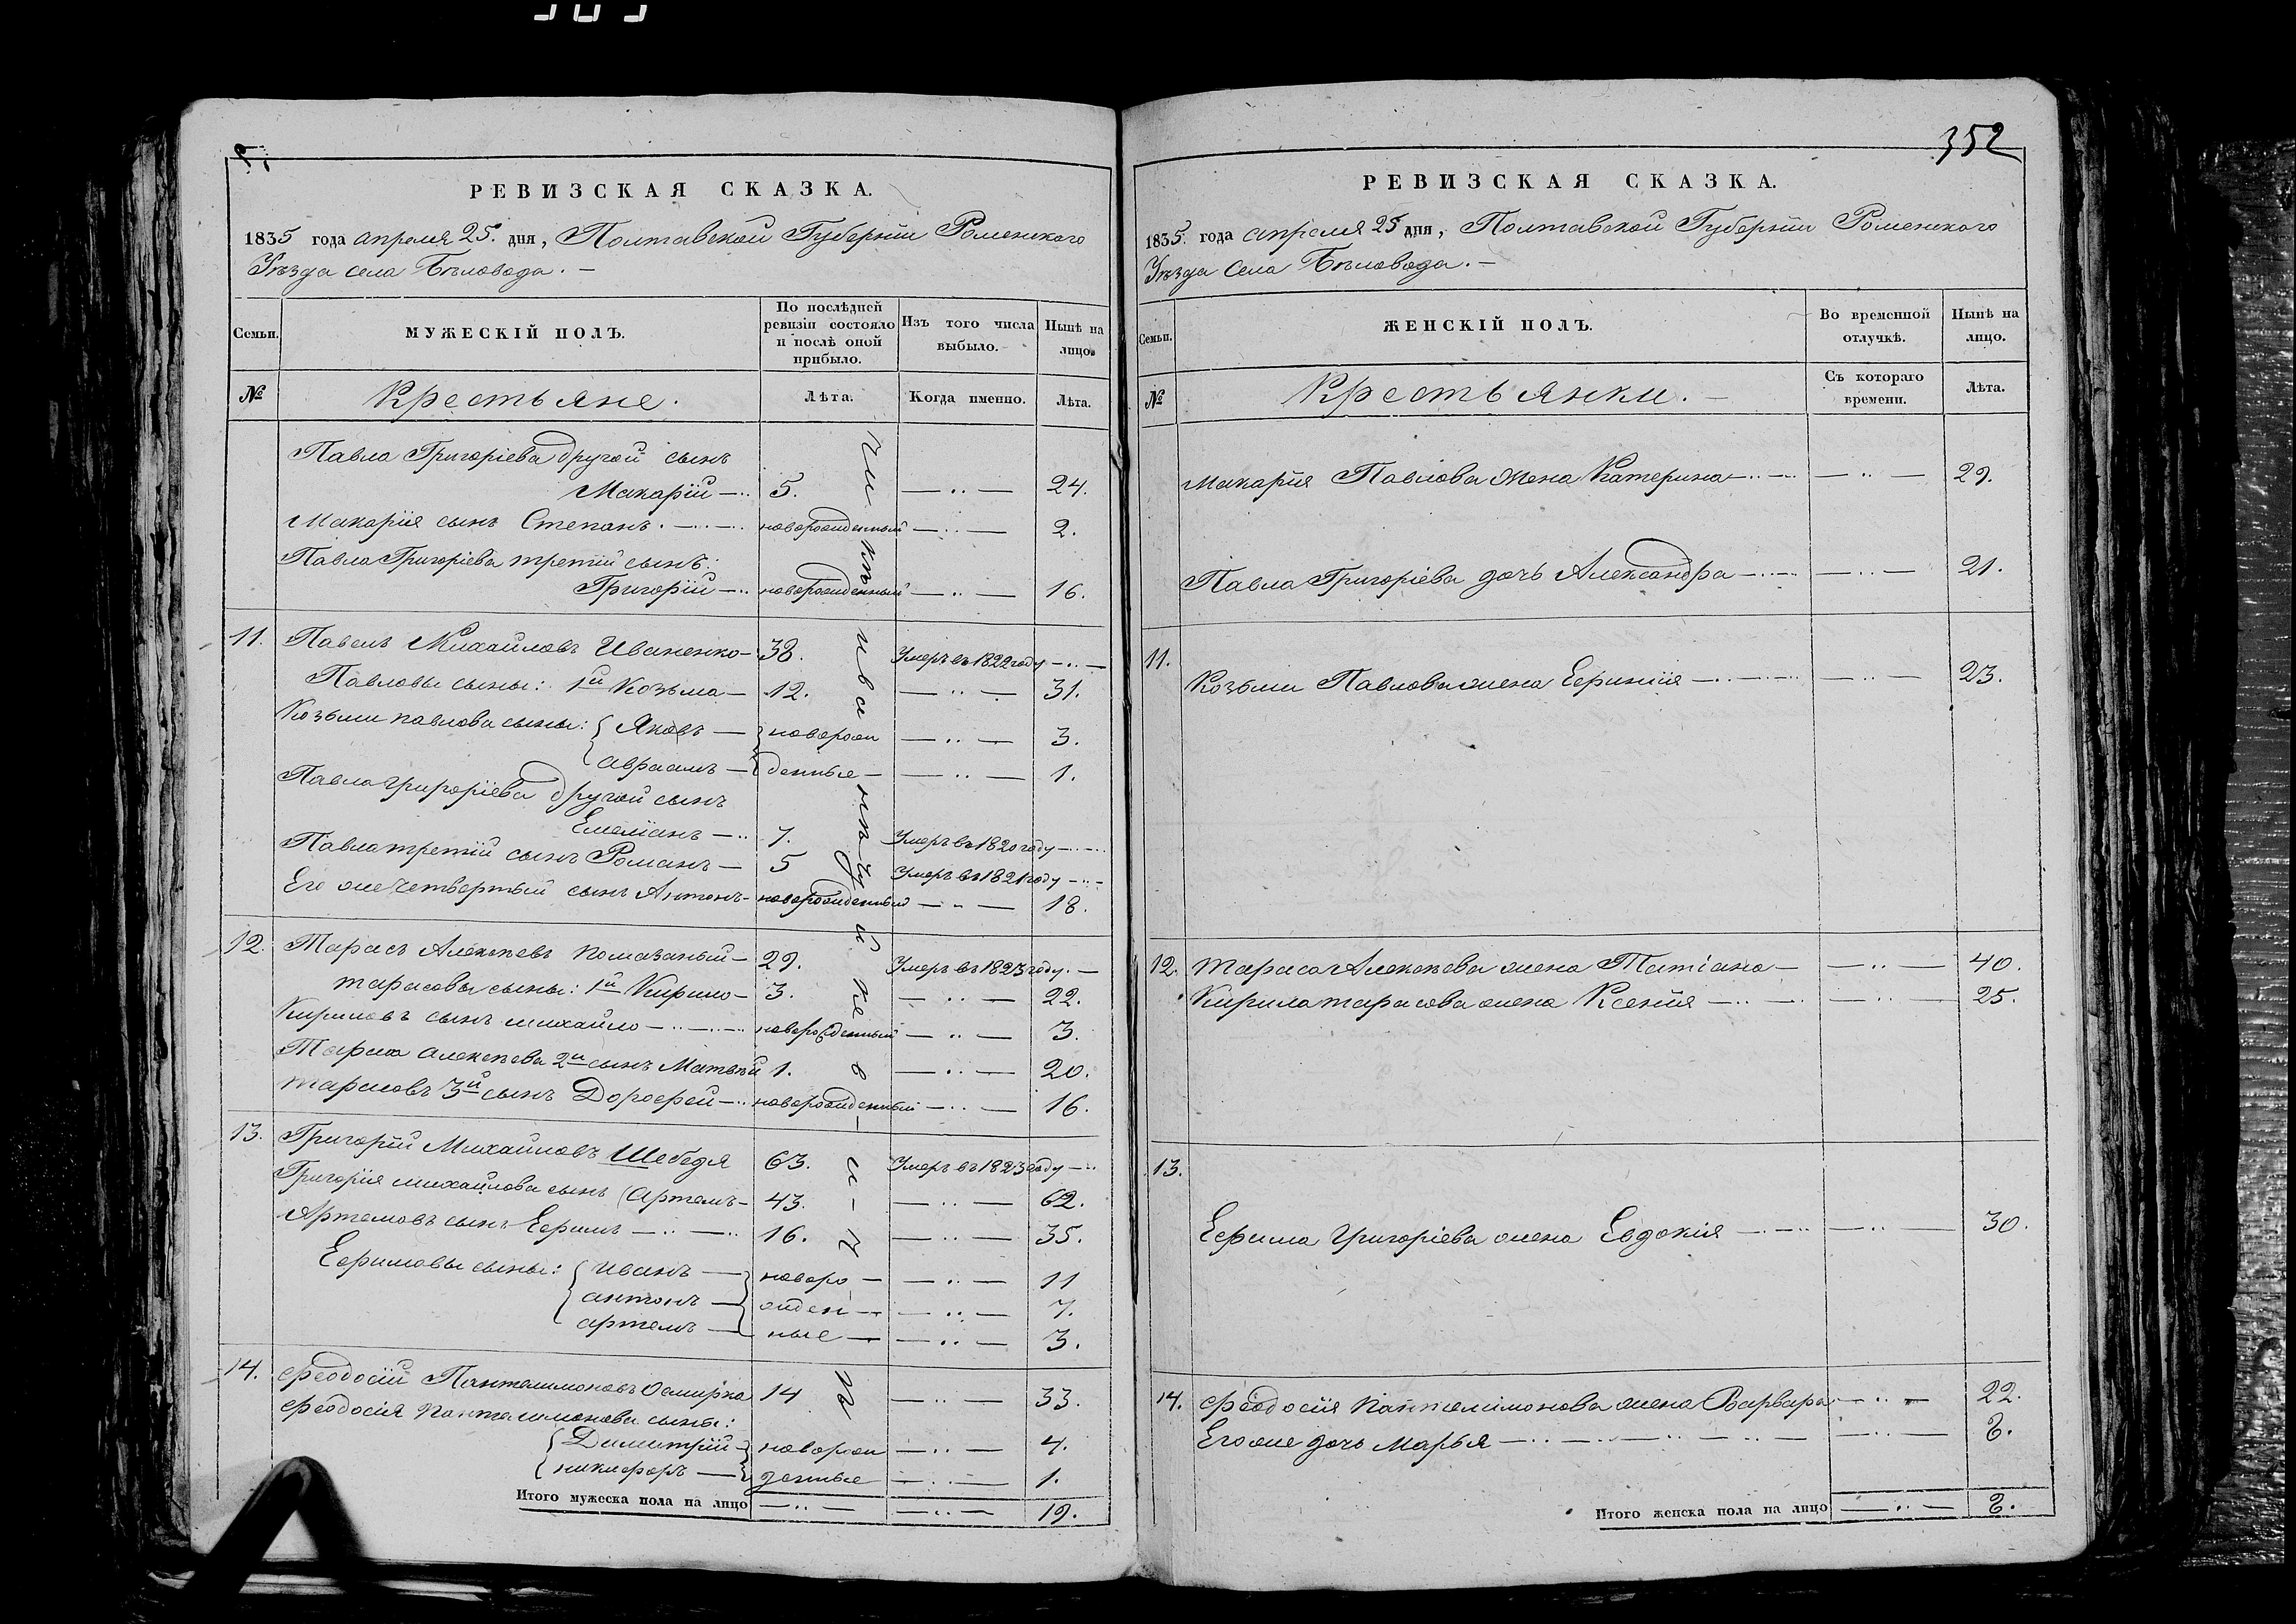 352
РЕВИЗСКАЯ СКАЗКА.
1835 года апреля 25. дня, Полтавской Губерніи Роменскаго
Уѣзда села Бѣловода. —
Семьи.
МУЖЕСКІЙ ПОЛЪ.
По послѣдней ревизіи состояло и послѣ оной прибыло.
Изъ того числа выбыло.
Нынѣ на лицо.
№
Крестьяне.
Лѣта.
Когда именно.
Лѣта.
Павла Григоріева другой сынъ
Макарій — 5. — 24.
Макарія сынъ Степанъ. — новорожденный — 2.
Павла Григоріева третій сынъ:
Григорій — новорожденный — 16.
11. Павелъ Михайловъ Иваненко — 38. Умеръ въ 1822 году —
Павловы сыны: 1й Козьма — 12. — 31.
Козьми павлова сыны: Яковъ — новорож — 3.
Авраамъ — денные — 1.
Павла григоріева другой сынъ
Емеліанъ — 7. Умеръ въ 1820 году —
Павла третій сынъ Романъ — 5 Умеръ въ 1821 году —
Его же четвертый сынъ Антонъ — новорожденный — 18.
12. Тарасъ Алексѣевъ Помазаный — 29. Умеръ въ 1823 году. —
тарасовы сыны: 1й Кирило — 3. — 22.
Кириловъ сынъ михайло — новорожденный — 3.
Тараса алексѣева 2й сынъ Матвѣй 1. — 20.
тарасовъ 3й сынъ Дорофей — новорожденный — 16.
13. Григорій Михайловъ Шебедя 63. Умеръ въ 1823 году —
Григорія михайлова сынъ Артемъ — 43. — 62.
Артемовъ сынъ Ефимъ — 16. — 35.
Ефимовы сыны: иванъ — новоро — 11
антонъ — жден — 7.
артемъ — ные — 3.
14. Феодосій Пантелимоновъ Осмирко 14 — 33.
Феодосія Пантелимонова сыны:
Димитрій — новорож — 4.
никифоръ — денные — 1.
Итого мужеска пола на лицо — 19.
РЕВИЗСКАЯ СКАЗКА.
1835. года апреля 25 дня, Полтавской Губерніи Роменскаго
Уѣзда села Бѣловода. —
Семьи.
ЖЕНСКІЙ ПОЛЪ.
Во временной отлучкѣ.
Нынѣ на лицо.
№
Крестьянки. —
Съ котораго времени.
Лѣта.
Макарія Павлова жена Катерина — 29.
Павла Григоріева дочь Александра — 21.
11.
Козьми Павлова жена Ефимія — 23.
12. Тараса Алексѣева жена Татіана — 40.
Кирила тарасова жена Ксенія — 25.
13.
Ефима григоріева жена Евдокія — 30.
14. Феодосія Пантелімонова жена Варвара — 22.
Его же дочь Марья — 8.
Итого женска пола на лицо — 8.